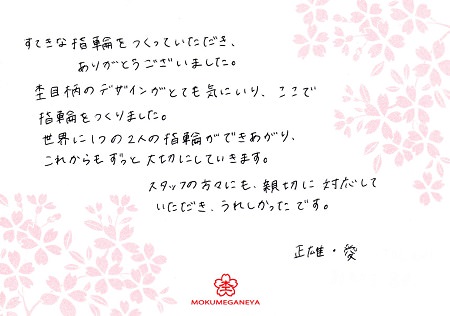 すてきな指輪をつくっていただき、
ありがとうございました。
杢目柄のデザインがとても気にいり、ここで
指輪をつくりました。
世界に1つの2人の指輪ができあがり、
これからもずっと大切にしていきます。
スタッフの方々にも、親切に対応して
いただき、うれしかったです。
正雄・愛
杢
MOKUMEGANEYA